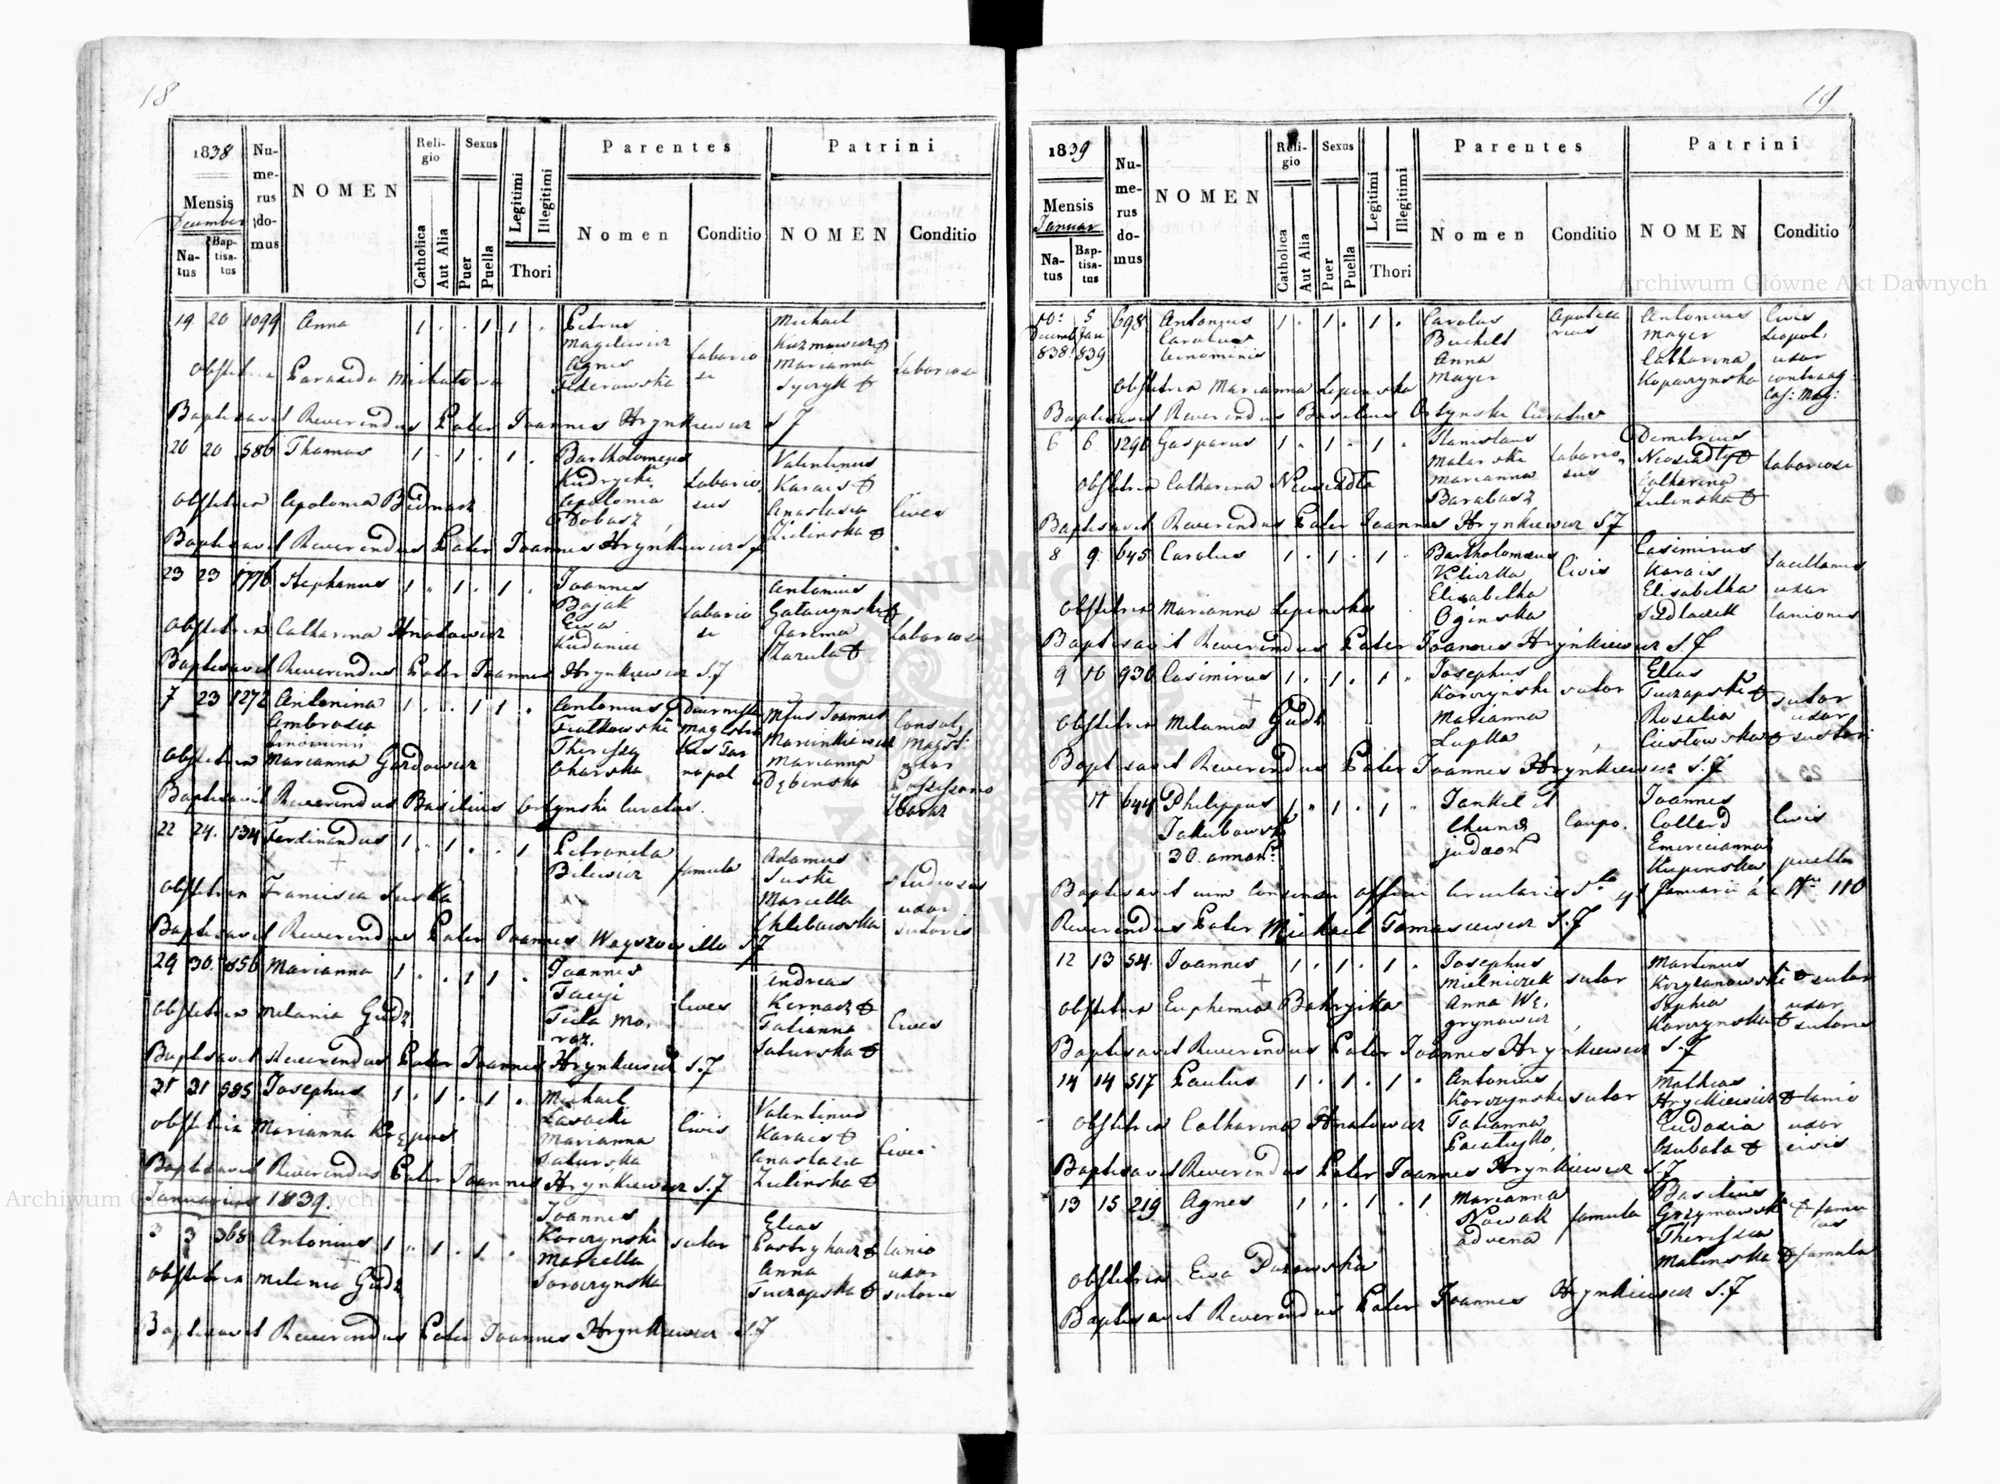 18
1838
Mensis
December
Natus
Baptisatus
Numerus domus
NOMEN
Religio
Catholica
Aut Alia
Sexus
Puer
Puella
Legitimi
Illegitimi
Thori
Parentes
Nomen
Conditio
Patrini
NOMEN
Conditio
19 20 1099 Anna 1 . . 1 1 . Petrus Michael
Magilewicz
Agnes laborio Marianna laboriosi
Federowska se Syczyk +
Obstetrix Paraseda Michalowa
Baptisavit Reverendus Pater Joannes Hrynkiewicz S J
20 20 586 Thomas 1 . 1 . 1 . Bartholomeus Valentinus
Kudrycki laborio Karais +
Obstetrix Apolonia Bednarz Apolonia sus Anastasia Cives
Dobasz Zielinska +
Baptisavit Reverendus Pater Joannes Hrynkiewicz S J
23 23 1776 Stephanus 1 . 1 . 1 . Joannes Antonius
Bojak laborio
Obstetrix Catharina Hnatowicz Ewa se Jarema laboriosi
Baptisavit Reverendus Pater Joannes Hrynkiewicz S. J
7 23 1272 Antonina 1 . . 1 1 . Antonius Joannes Consul
Ambrosia Fiutkowski Marcinkiewicz Magist:
Obstetrix Marianna Gordowicz Theressa Marianna uxor
Dębinska
Baptisavit Reverendus Basilius Ortynski Curatus.
22 24. 134 Ferdinandus 1 . 1 . . 1 Petronela Adamus
Bilewicz famula Suski studiosus
Obstetrix Francisca Suska Marcella uxor
Chlebowska sutoris
Baptisavit Reverendus Pater Joannes Woyszwillo S J
29 30. 856 Marianna 1 . . 1 1 . Joannes Andreas
Cives Kernasz +
Obstetrix Melania Gudz Tecla Mo, Tatianna Cives
roz. Saturska +
Baptisavit Reverendus Pater Joannes Hrynkiewicz S. J
31 31 585 Josephus 1 . 1 . 1 . Michael Valentinus
Lasocki Civis Karais +
Obstetrix Marianna Krępus Marianna Anastasia Cives
Saturska Zielinska +
Baptisavit Reverendus Pater Joannes Hrynkiewicz S. J
Januarius 1839.
3 3 368 Antonius 1 . 1 . 1 . Joannes Elias
Korczynski sutor Pastryhacz + lanio
Obstetrix Melania Gudz Marcella Anna uxor
Soroczynska Tuczapska + sutoris
Baptisavit Reverendus Pater Joannes Hrynkiewicz S. J
19
1839
Mensis
Januar
Natus
Baptisatus
Numerus domus
NOMEN
Religio
Catholica
Aut Alia
Sexus
Puer
Puella
Legitimi
Illegitimi
Thori
Parentes
Nomen
Conditio
Patrini
NOMEN
Conditio
10: 5 698 Antonius 1 . 1 . 1 . Carolus Apoteca Antonius Civis
Decemb Jan Carolus Buchelt rius Mayer Leopol,
838. 839 binominis Anna Catharina uxor
Obstetrix Marianna Lepinska Mayer Kopaczynska
Baptisavit Reverendus Basilius Ortynski Curatus
6 6. 1290 Gasparus 1 . 1 . 1 . Stanislaus Demetrius
Malarski laborio, laboriosi
Obstetrix Catharina Niesiadla Marianna sus Catharina
Barabasz Zielinska +
Baptisavit Reverendus Pater Joannes Hrynkiewicz S J
8 9. 645 Carolus 1 . 1 . 1 . Bartholomeus Casimirus
Kliszka Civis Karais
Obstetrix Marianna Lepinska Elisabetha Elisabetha uxor
Oginska Sedlaczek lanionis
Baptisavit Reverendus Pater Joannes Hrynkiewicz S. J
9 10 930 Casimirus 1 . 1 . 1 . Josephus Elias
Korczynski sutor Tuczapski + sutor
Obstetrix Melania Gudz Marianna Rosalia uxor
Lupka Ciestowska + sutoris
Baptisavit Reverendus Pater Joannes Hrynkiewicz S. J
11 644 Philippus 1 . 1 . 1 . Jankel et Joannes
Jakubowski Chune Caupo. Collard Civis
30. annor: judaeor Emerecianna
Kupinska puella
Baptisavit cum Consensu Officii Circularis 4 Januarii a c Nro 110
Reverendus Pater Michael Tomasiewicz S. J
12 13 54. Joannes 1 . 1 . 1 . Josephus Martinus
Mielniczek sutor Krzyzanowski + sutor
Obstetrix Euphemia Bohryika Anna Wę, Sophia uxor
grynowicz Korczynska + sutoris
Baptisavit Reverendus Pater Joannes Hrynkiewicz S. J
14 14 517 Paulus 1 . 1 . 1 . Antonius Mathias
Korczynski sutor Hryckiewicz + lanio
Obstetrix Catharina Hnatowicz Tatianna Eudoxia uxor
civis
Baptisavit Reverendus Pater Joannes Hrynkiewicz S. J
13 15 219 Agnes 1 . . 1 . 1 Marianna Basilius
Nowak famula Grzymowski + famu
advena Theressia lus
Malinska + famula
Obstetrix Ewa Purowska
Baptisavit Reverendus Pater Joannes Hrynkiewicz S. J
Archiwum Główne Akt Dawnych
Archiwum Główne Akt Dawnych